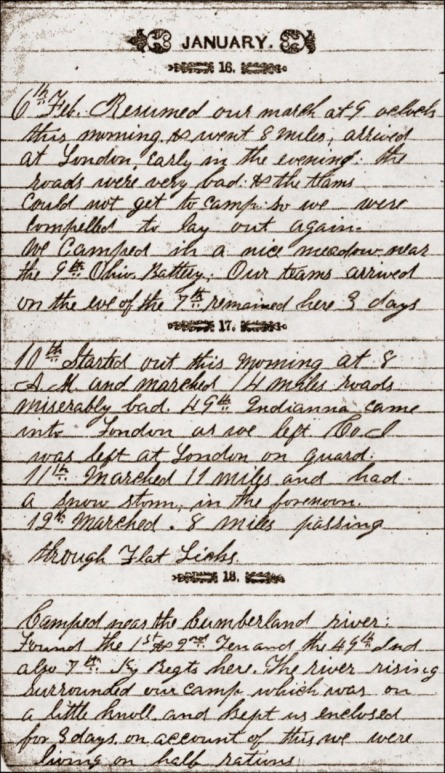 JANUARY.
16.
6th Feb. Resumed our march at 9 oclock
this morning & went 8 miles, arrived
at London, Early in the evening: the
roads were very bad. & the teams
could not get to camp. so we were
compelled to lay out again.
We Camped in a nice meadow near
the 9th Ohio Battery. Our teams arrived
on the eve of the 7th remained here 3 days
17.
10th Started out this morning at 8
A.M and marched 14 miles roads
miserably bad. 49th Indianna came
into London as we left Co I
was left at London on guard.
11th Marched 11 miles and had
a snow storm, in the forenoon.
12th Marched. 8 miles passing
through Flat Licks.
18.
Camped near the Cumberland river.
Found the 1st & 2nd Ten and the 49th Ind
also 7th Ky Regts here. The river rising
surrounded our camp which was on
a little knoll and kept us enclosed
for 3 days. on account of this we were
living on half rations